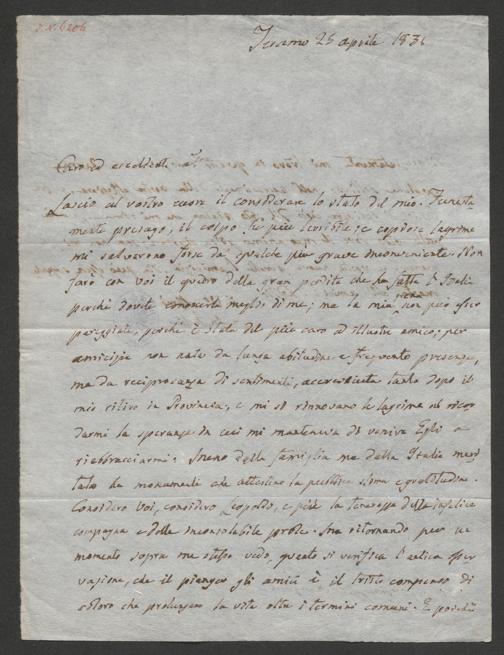 I.N. 6206
Teramo 25 aprile 1831
Caro ed eccellente
Lascio al vostro cuore il considerare lo stato del mio. Funesta-
mente presago, il colpo fu più terribile; e copiose lagrime
mi salvarono forse da qualche più grave inconveniente. Non
farò con voi il quadro della gran perdita che ha fatta l'Italia
perchè dovete conoscerla meglio di me; ma la mia non può esser
pareggiata, perchè è stata del più caro ed illustre amico; per
amicizia non nata da lunga abitudine e frequente presenza,
ma da reciprocanza di sentimenti, accresciuta tanto dopo il
mio ritiro in Provincia; e mi si rinnovano le lagrime al ricor-
darmi la speranza in cui mi manteneva di venire Egli a
riabbracciarmi. della famiglia ma della Italia meri
tato ha monumenti che attestino la pubblica stima e gratitudine.
Considero voi, considero Leopoldo, e più la tenerezza della infelice
compagna e della inconsolabile prole. Ma ritornando per un
momento sopra me stesso vedo, quanto si verifica l'antica osser
vazione, che il piangere gli amici è il tristo compenso di
coloro che prolungano la vita oltre i termini comuni. E poichè